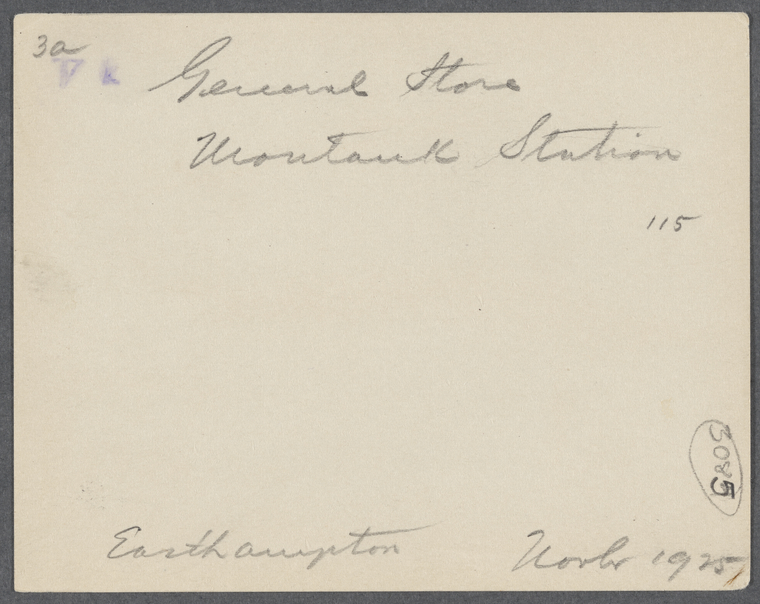 3a
General Store
Montauk Station
115
3085
Easthampton Novbr 1925